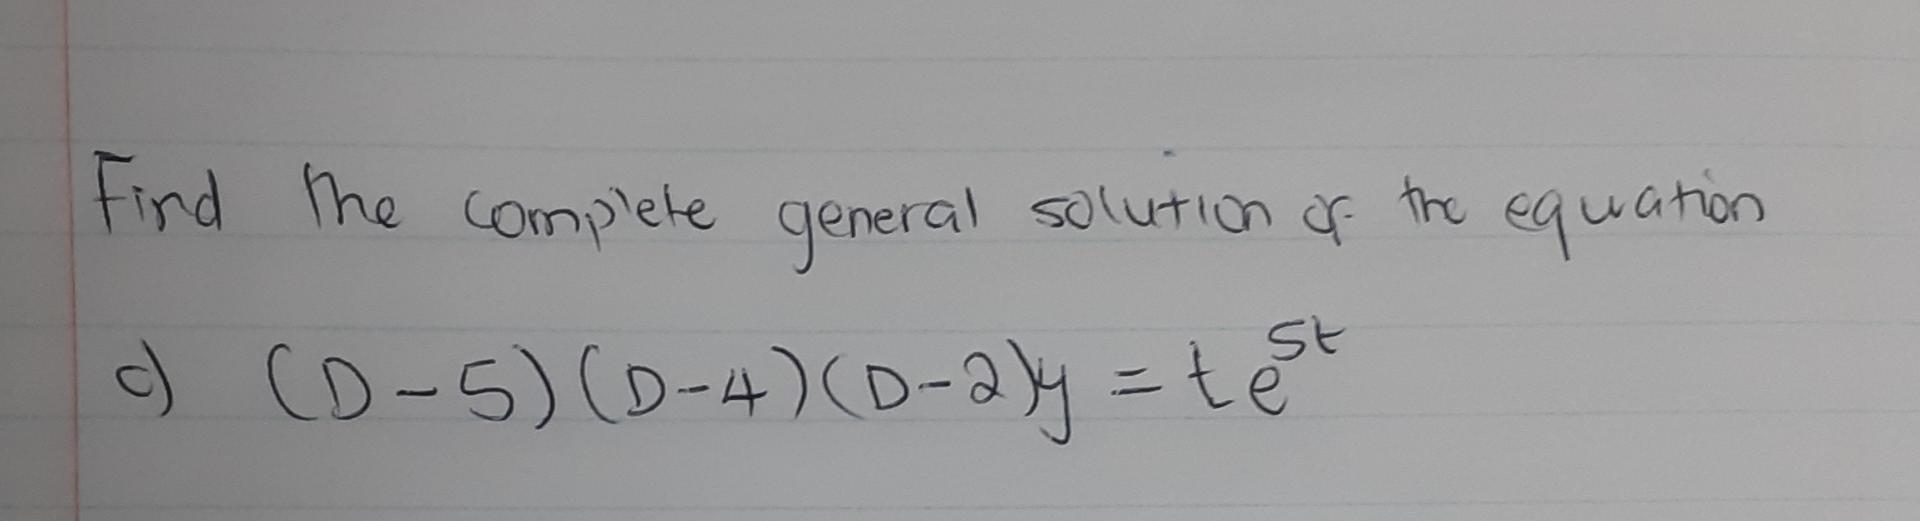 Find the complete general solution of the equation
c) (D-5)(D-4)(D-2)y = te^5t